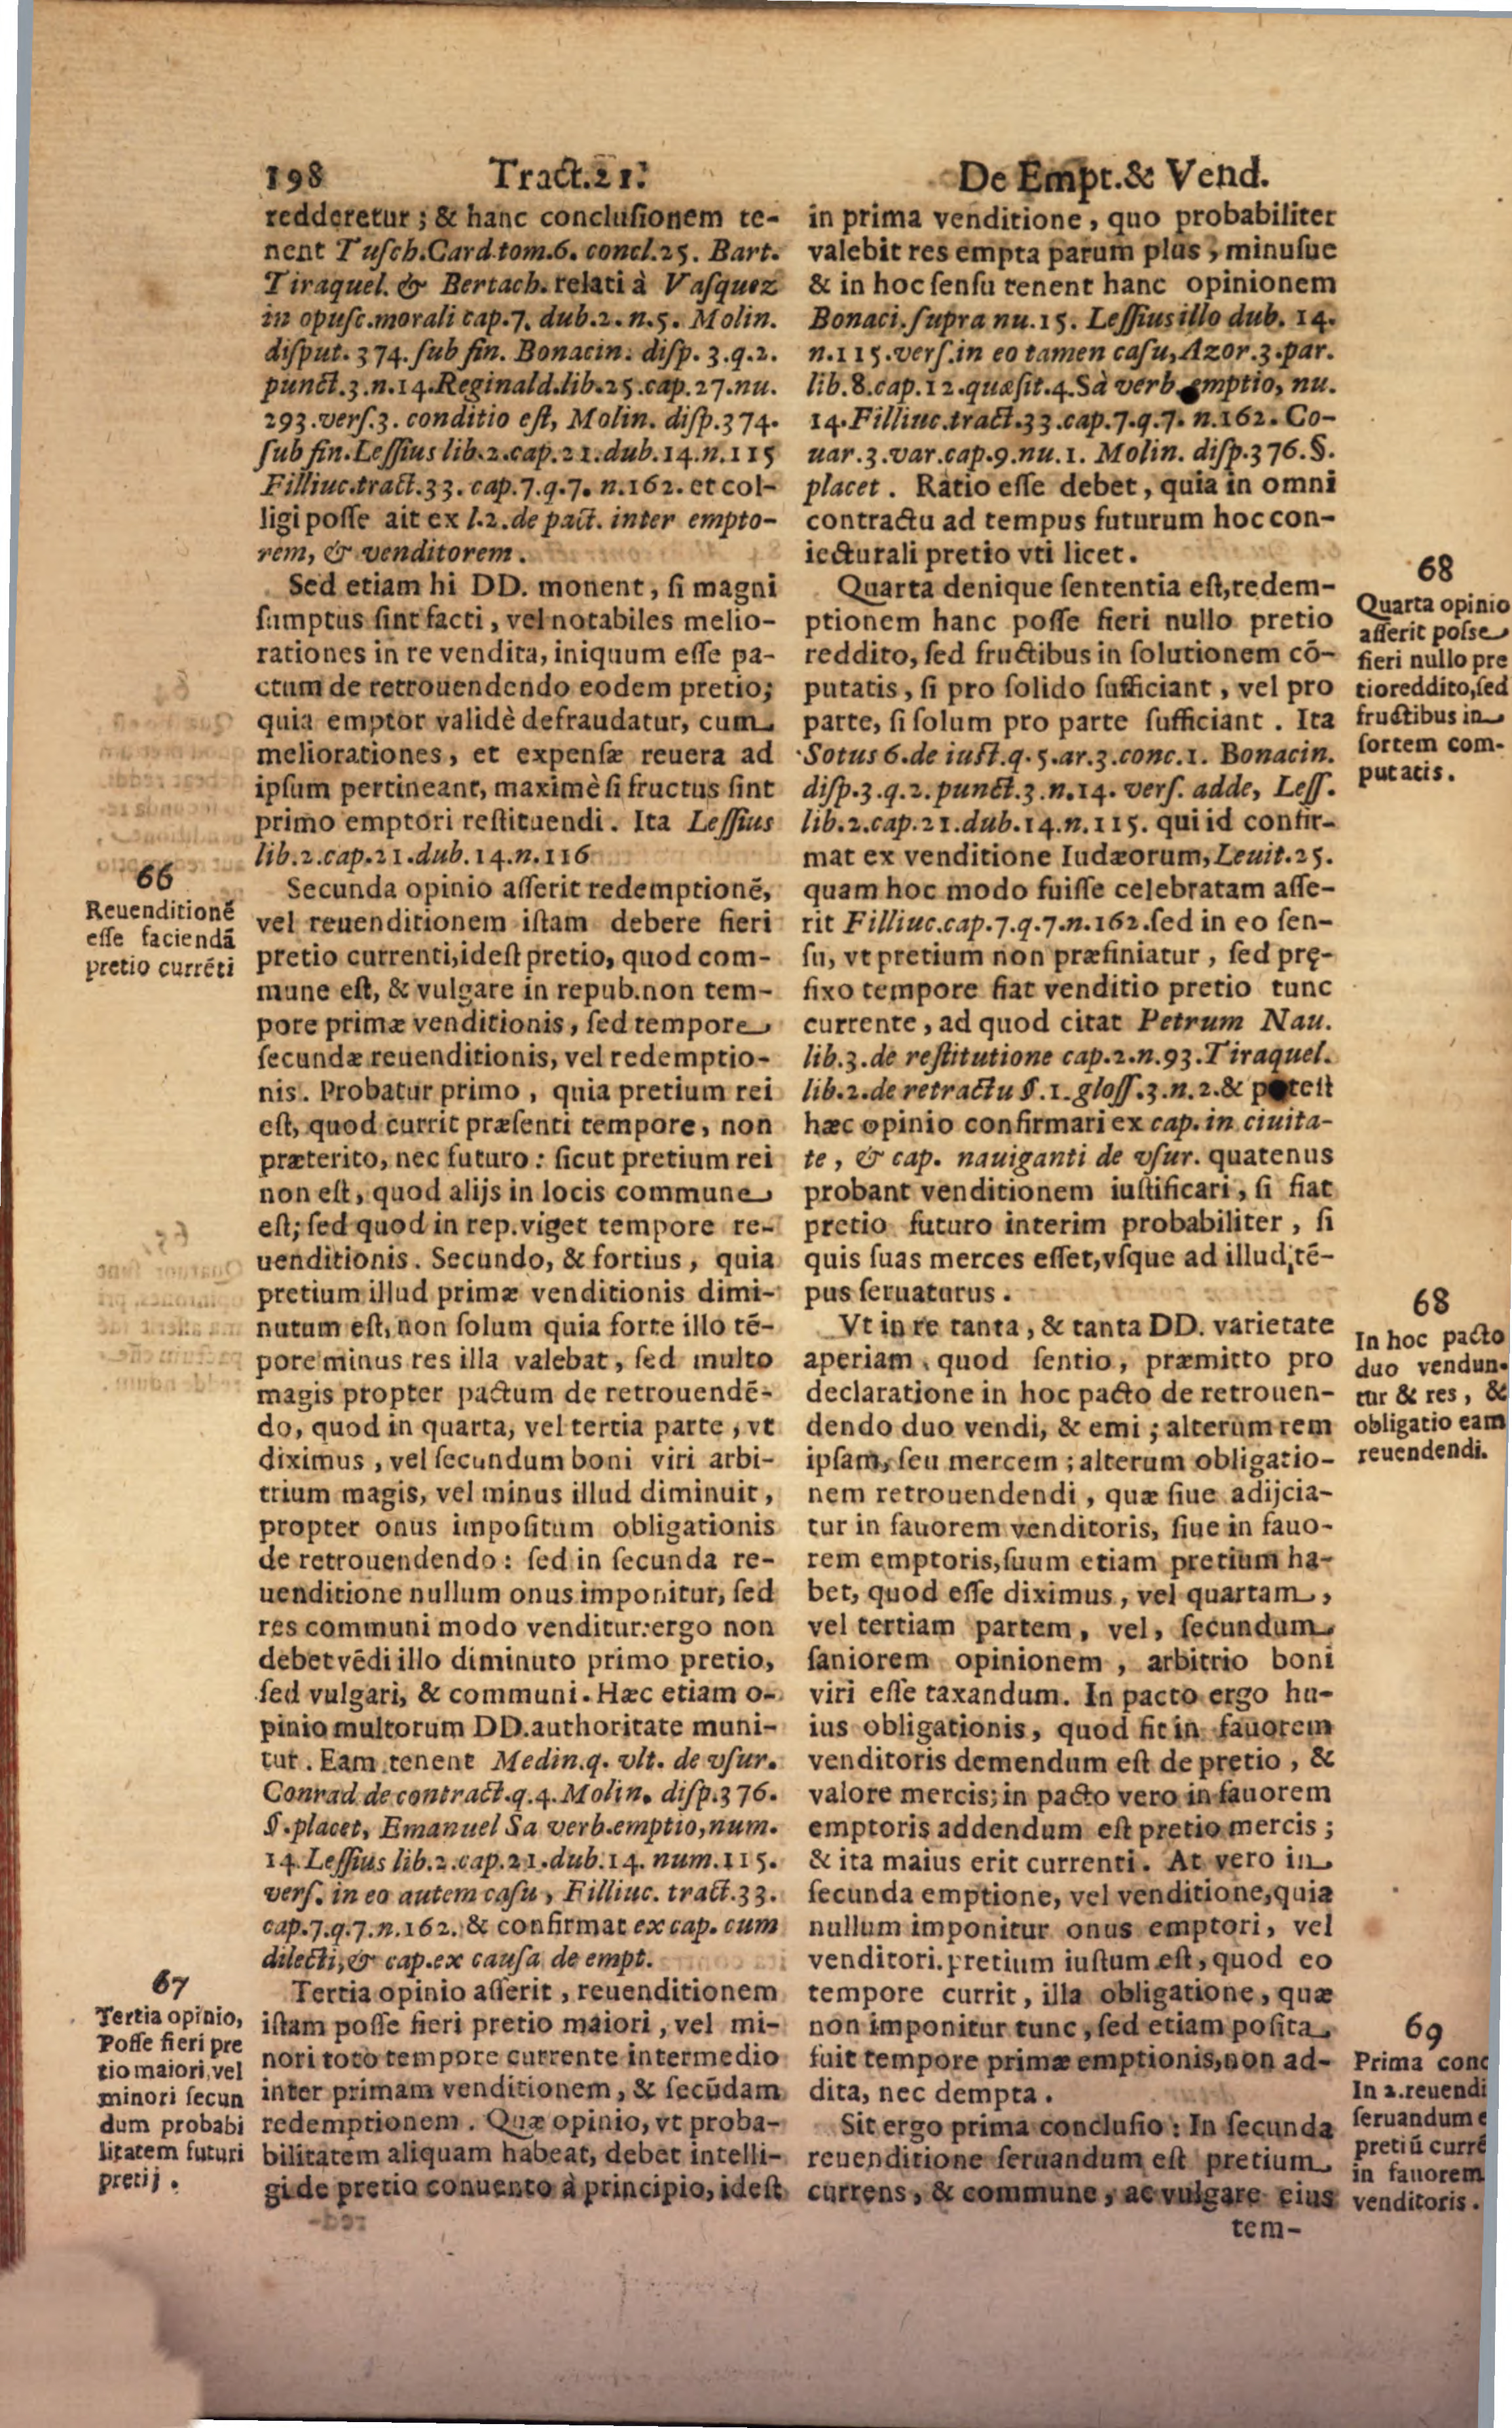 198 Tract.21. De Empt.& Vend.
redderetur; & hanc conclusionem te-
nent Tusch.Card.tom.6. concl.25. Bart.
Tiraquel. & Bertach. relati à Vasquez
in opusc.morali cap.7. dub.2. n.5. Molin.
disput. 374. sub fin. Bonacin. disp. 3.q.2.
punct.3.n.14.Reginald.lib.25.cap.27.nu.
293.vers.3. conditio est, Molin. disp.374.
sub fin.Lessius lib.2.cap.21.dub.14.n.115
Filliuc.tract.33. cap.7.q.7. n.162. et col-
ligi posse ait ex l.2.de pact. inter empto-
rem, & venditorem.
Sed etiam hi DD. monent, si magni
sumptus sint facti, vel notabiles melio-
rationes in re vendita, iniquum esse pa-
ctum de retrouendendo eodem pretio;
quia emptor validè defraudatur, cum
meliorationes, et expensæ reuera ad
ipsum pertineant, maximè si fructus sint
primo emptori restituendi. Ita Lessius
lib.2.cap.21.dub.14.n.116
66
Reuenditionē
esse faciendā
pretio currēti
Secunda opinio asserit redemptionē,
vel reuenditionem istam debere fieri
pretio currenti,idest pretio, quod com-
mune est, & vulgare in repub.non tem-
pore primæ venditionis, sed tempore
secundæ reuenditionis, vel redemptio-
nis. Probatur primo, quia pretium rei
est, quod currit præsenti tempore, non
præterito, nec futuro: sicut pretium rei
non est, quod alijs in locis commune
est; sed quod in rep.viget tempore re-
uenditionis. Secundo, & fortius, quia
pretium illud primæ venditionis dimi-
nutum est, non solum quia forte illo tē-
pore minus res illa valebat, sed multo
magis propter pactum de retrouendē-
do, quod in quarta, vel tertia parte, vt
diximus, vel secundum boni viri arbi-
trium magis, vel minus illud diminuit,
propter onus impositum obligationis
de retrouendendo: sed in secunda re-
uenditione nullum onus imponitur, sed
res communi modo venditur: ergo non
debet vēdi illo diminuto primo pretio,
sed vulgari, & communi. Hæc etiam o-
pinio multorum DD.authoritate muni-
tur. Eam tenent Medin.q. vlt. de vsur.
Conrad.de contract.q.4.Molin. disp.376.
§.placet, Emanuel Sa verb.emptio,num.
14.Lessius lib.2.cap.21.dub.14. num.115.
vers. in eo autem casu, Filliuc. tract.33.
cap.7.q.7.n.162. & confirmat ex cap. cum
dilecti,& cap.ex causa de empt.
67
Tertia opinio,
Posse fieri pre
tio maiori, vel
minori secun
dum probabi
litatem futuri
pretij.
Tertia opinio asserit, reuenditionem
istam posse fieri pretio maiori, vel mi-
nori toto tempore currente intermedio
inter primam venditionem, & secūdam
redemptionem. Quæ opinio, vt proba-
bilitatem aliquam habeat, debet intelli-
gi de pretio conuento à principio, idest
in prima venditione, quo probabiliter
valebit res empta parum plus, minusue
& in hoc sensu tenent hanc opinionem
Bonaci.supra nu.15. Lessius illo dub. 14.
n.115.vers.in eo tamen casu,Azor.3.par.
lib.8.cap.12.quæsit.4.Sà verb.emptio, nu.
14.Filliuc.tract.33.cap.7.q.7. n.162. Co-
uar.3.var.cap.9.nu.1. Molin. disp.376.§.
placet. Ratio esse debet, quia in omni
contractu ad tempus futurum hoc con-
iecturali pretio vti licet.
68
Quarta opinio
asserit posse
fieri nullo pre
tio reddito,sed
fructibus in
sortem com-
putatis.
Quarta denique sententia est,redem-
ptionem hanc posse fieri nullo pretio
reddito, sed fructibus in solutionem cō-
putatis, si pro solido sufficiant, vel pro
parte, si solum pro parte sufficiant. Ita
Sotus 6.de iust.q.5.ar.3.conc.1. Bonacin.
disp.3.q.2.punct.3.n.14. vers. adde, Less.
lib.2.cap.21.dub.14.n.115. qui id confir-
mat ex venditione Iudæorum,Leuit.25.
quam hoc modo fuisse celebratam asse-
rit Filliuc.cap.7.q.7.n.162.sed in eo sen-
su, vt pretium non præfiniatur, sed prę-
fixo tempore fiat venditio pretio tunc
currente, ad quod citat Petrum Nau.
lib.3.de restitutione cap.2.n.93.Tiraquel.
lib.2.de retractu §.1.gloss.3.n.2.& potest
hæc opinio confirmari ex cap. in ciuita-
te, & cap. nauiganti de vsur. quatenus
probant venditionem iustificari, si fiat
pretio futuro interim probabiliter, si
quis suas merces esset,vsque ad illud tē-
pus seruaturus.
68
In hoc pacto
duo vendun-
tur & res, &
obligatio eam
reuendendi.
Vt in re tanta, & tanta DD. varietate
aperiam quod sentio, præmitto pro
declaratione in hoc pacto de retrouen-
dendo duo vendi, & emi; alterum rem
ipsam, seu mercem; alterum obligatio-
nem retrouendendi, quæ siue adijcia-
tur in fauorem venditoris, siue in fauo-
rem emptoris, suum etiam pretium ha-
bet, quod esse diximus, vel quartam,
vel tertiam partem, vel, secundum
saniorem opinionem, arbitrio boni
viri esse taxandum. In pacto ergo hu-
ius obligationis, quod fit in fauorem
venditoris demendum est de pretio, &
valore mercis; in pacto vero in fauorem
emptoris addendum est pretio mercis;
& ita maius erit currenti. At vero in
secunda emptione, vel venditione,quia
nullum imponitur onus emptori, vel
venditori.pretium iustum est, quod eo
tempore currit, illa obligatione, quæ
non imponitur tunc, sed etiam posita
fuit tempore primæ emptionis,non ad-
dita, nec dempta.
69
Prima conc
In 2.reuendi
seruandum e
pretiū currē
in fauorem
venditoris.
Sit ergo prima conclusio: In secunda
reuenditione seruandum est pretium
currens, & commune, ac vulgare eius
tem-